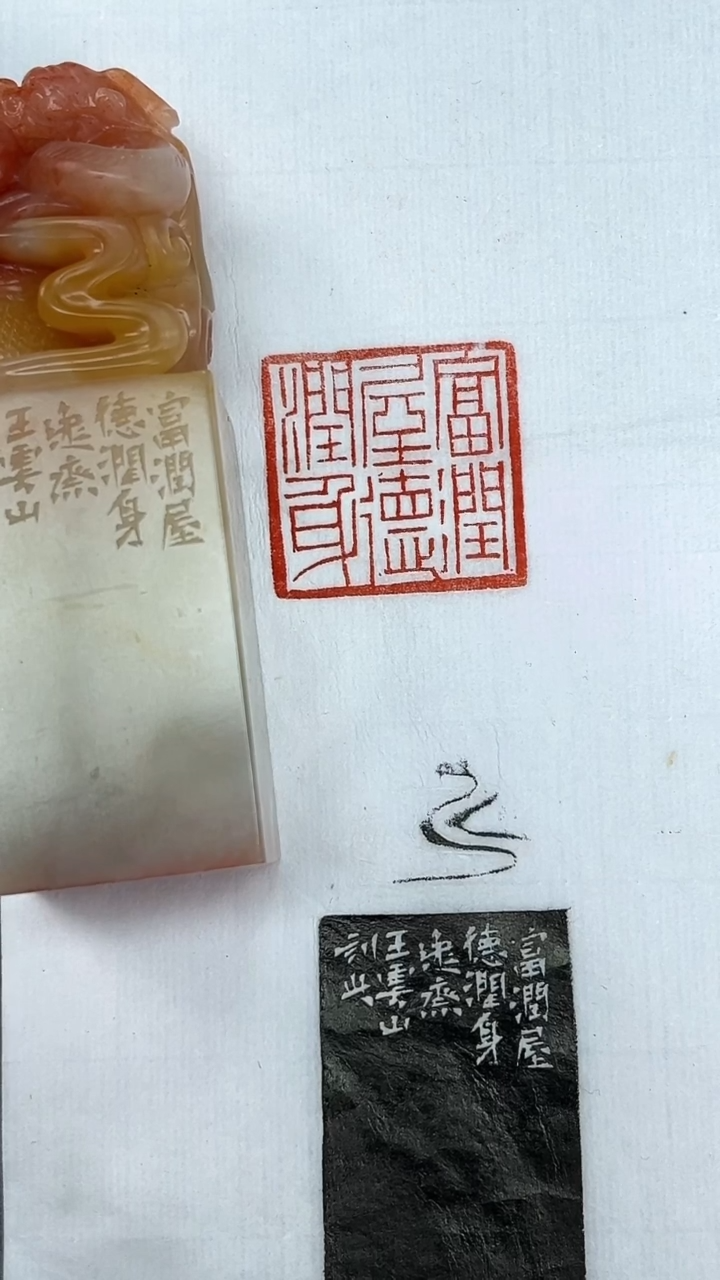 富潤屋
德潤身
逸齋
王雲山
富潤
屋德
潤身
富潤屋
德潤身
逸齋
王雲山
刻此